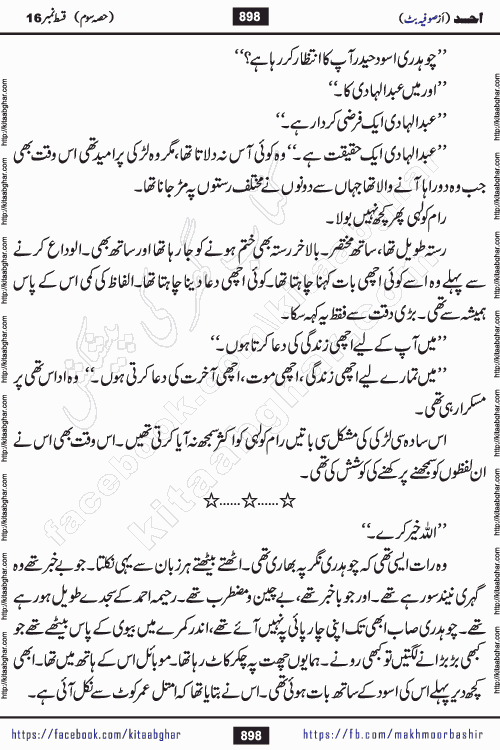 اُحد (از صوفیہ بٹ) 898 (حصہ سوم) قسط نمبر 16
’’چوہدری اسود حیدر آپ کا انتظار کر رہا ہے؟‘‘
’’اور میں عبدالہادی کا۔‘‘
’’عبدالہادی ایک فرضی کردار ہے۔‘‘
’’عبدالہادی ایک حقیقت ہے۔‘‘ وہ کوئی آس نہ دلاتا تھا، مگر وہ لڑکی پر امید تھی اس وقت بھی
جب وہ دوراہا آنے والا تھا جہاں سے دونوں نے مختلف رستوں پہ مڑ جانا تھا۔
رام کولہی پھر کچھ نہیں بولا۔
رستہ طویل تھا، ساتھ مختصر۔ بالاخر رستہ بھی ختم ہونے کو جا رہا تھا اور ساتھ بھی۔ الوداع کرنے
سے پہلے وہ اسے کوئی اچھی بات کہنا چاہتا تھا۔ کوئی اچھی دعا دینا چاہتا تھا۔ الفاظ کی کمی اس کے پاس
ہمیشہ سے تھی۔ بڑی دقت سے فقط یہ کہہ سکا۔
’’میں آپ کے لیے اچھی زندگی کی دعا کرتا ہوں۔‘‘
’’میں تمہارے لیے اچھی زندگی، اچھی موت، اچھی آخرت کی دعا کرتی ہوں۔‘‘ وہ اداس تھی پر
مسکرا رہی تھی۔
اس سادہ سی لڑکی کی مشکل سی باتیں رام کولہی کو اکثر سمجھ نہ آیا کرتی تھیں۔ اس وقت بھی اس نے
ان لفظوں کو سمجھنے پرکھنے کی کوشش کی تھی۔
☆......☆......☆
’’اللہ خیر کرے۔‘‘
وہ رات ایسی تھی کہ چوہدری نگر پہ بھاری تھی۔ اٹھتے بیٹھتے ہر زبان سے یہی نکلتا۔ جو بے خبر تھے وہ
گہری نیند سو رہے تھے۔ اور جو با خبر تھے، بے چین و مضطرب تھے۔ رحیمہ احمد کے سجدے طویل ہو رہے
تھے۔ چوہدری صاب ابھی تک اپنی چارپائی پہ نہیں آئے تھے، اندر کمرے میں بیوی کے پاس بیٹھے تھے جو
کبھی بڑبڑانے لگتیں تو کبھی رونے۔ ہمایوں چھت پہ چکر کاٹ رہا تھا۔ موبائل اس کے ہاتھ میں تھا۔ ابھی
کچھ دیر پہلے اس کی اسود کے ساتھ بات ہوئی تھی۔ اس نے بتایا تھا کہ امتل عمر کوٹ سے نکل آئی ہے۔
https://facebook.com/kitaabghar 898 https://fb.com/makhmoorbashir
http://kitaabghar.com
http://kitaabghar.com
http://kitaabghar.com
http://kitaabghar.com
http://kitaabghar.com
http://kitaabghar.com
http://kitaabghar.com
http://kitaabghar.com
کتاب گھر کی پیشکش
facebook.com/kitaabghar
kitaabghar.com